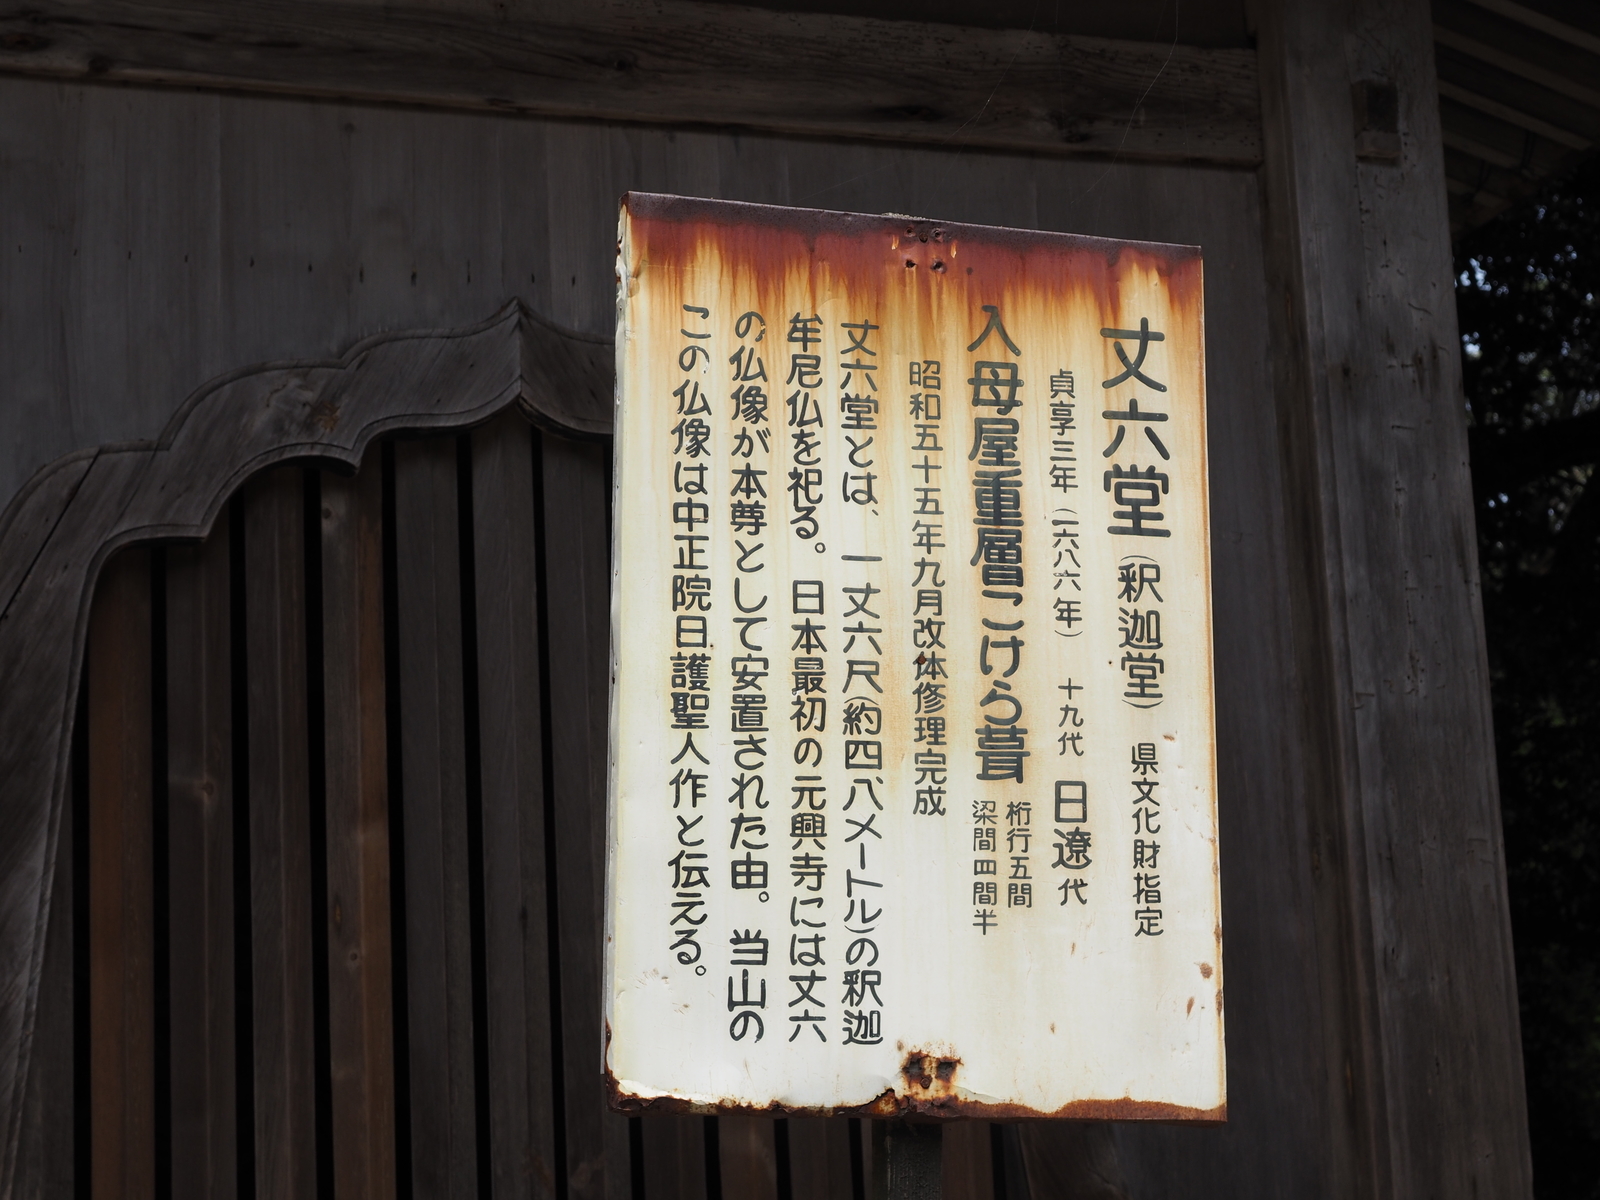 丈六堂（釈迦堂）　県文化財指定
貞享三年（一六八六年）　十九代　日遼代
入母屋重層こけら葺
桁行五間
梁間四間半
昭和五十五年九月改体修理完成
丈六堂とは、一丈六尺（約四・八メートル）の釈迦
牟尼仏を祀る。日本最初の元興寺には丈六
の仏像が本尊として安置された由。当山の
この仏像は中正院日護聖人作と伝える。